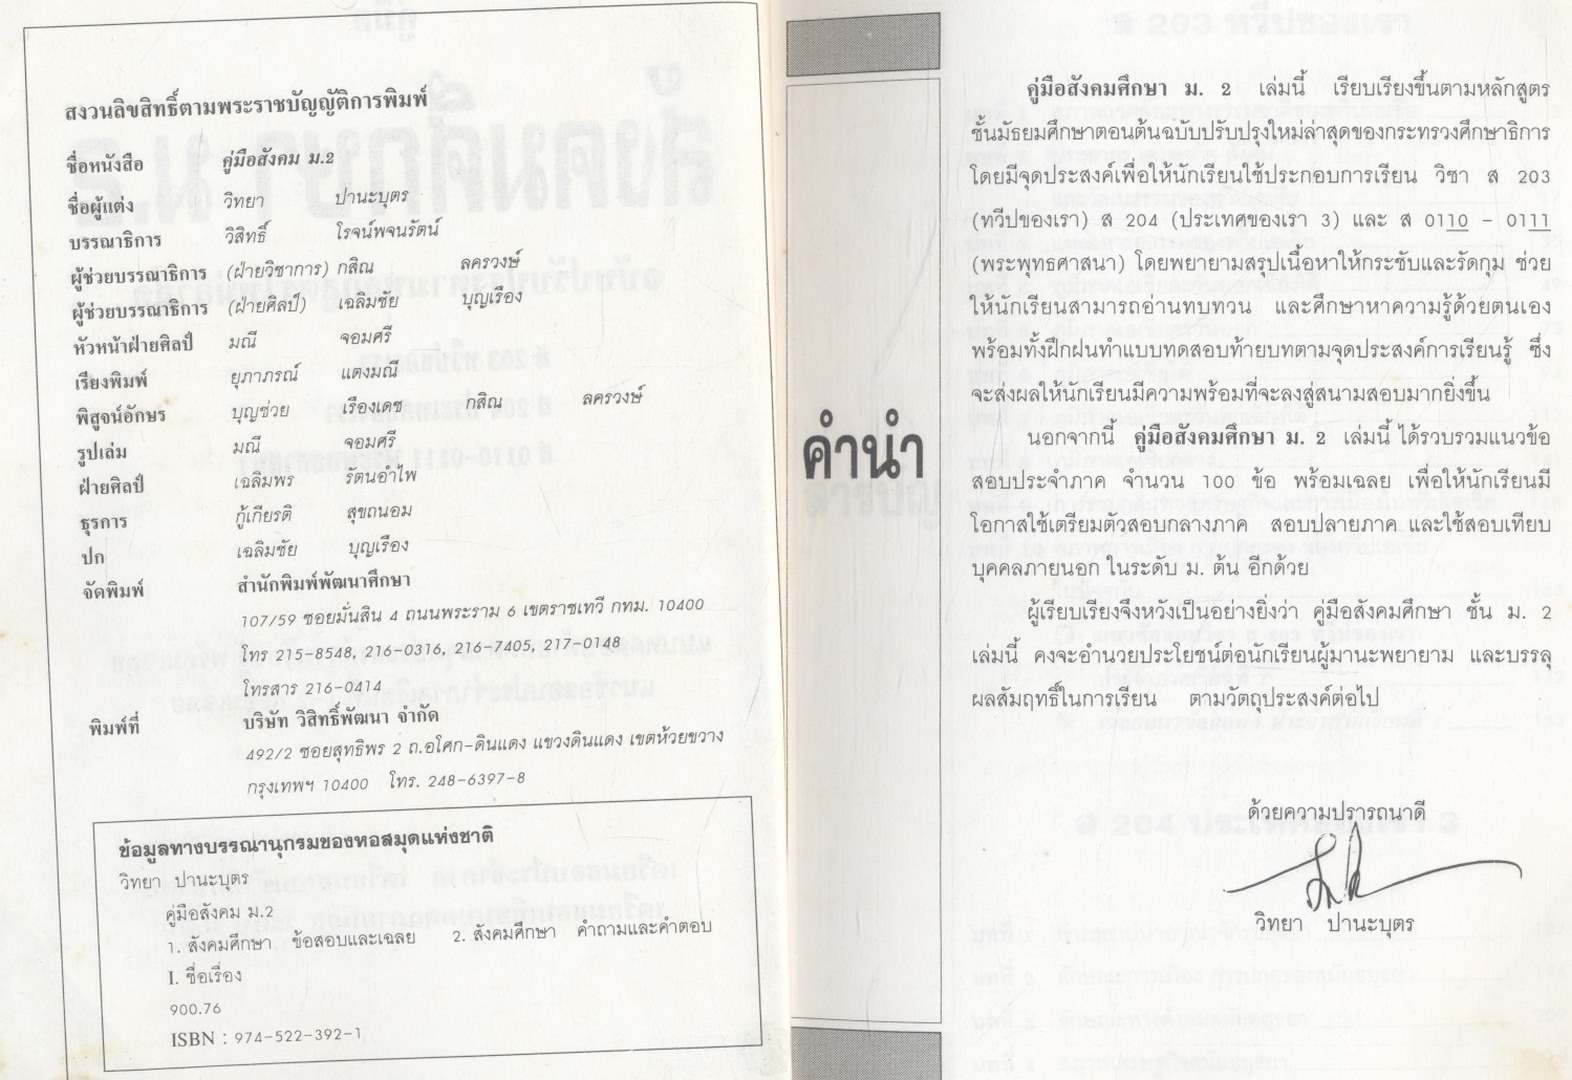 สงวนลิขสิทธิ์ตามพระราชบัญญัติการพิมพ์
ชื่อหนังสือ คู่มือสังคม ม.2
ชื่อผู้แต่ง วิทยา ปานะบุตร
บรรณาธิการ วิสิทธิ์ โรจน์พจนรัตน์
ผู้ช่วยบรรณาธิการ (ฝ่ายวิชาการ) กสิณ ลครวงษ์
ผู้ช่วยบรรณาธิการ (ฝ่ายศิลป์) เฉลิมชัย บุญเรือง
หัวหน้าฝ่ายศิลป์ มณี จอมศรี
เรียงพิมพ์ ยุภาภรณ์ แตงมณี
พิสูจน์อักษร บุญช่วย เรืองเดช กสิณ ลครวงษ์
รูปเล่ม มณี จอมศรี
ฝ่ายศิลป์ เฉลิมพร รัตนอำไพ
ธุรการ กู้เกียรติ สุขถนอม
ปก เฉลิมชัย บุญเรือง
จัดพิมพ์ สำนักพิมพ์พัฒนาศึกษา
107/59 ซอยมั่นสิน 4 ถนนพระราม 6 เขตราชเทวี กทม. 10400
โทร 215-8548, 216-0316, 216-7405, 217-0148
โทรสาร 216-0414
พิมพ์ที่ บริษัท วิสิทธิ์พัฒนา จำกัด
492/2 ซอยสุทธิพร 2 ถ.อโศก-ดินแดง แขวงดินแดง เขตห้วยขวาง
กรุงเทพฯ 10400 โทร. 248-6397-8
ข้อมูลทางบรรณานุกรมของหอสมุดแห่งชาติ
วิทยา ปานะบุตร
คู่มือสังคม ม.2
1. สังคมศึกษา ข้อสอบและเฉลย 2. สังคมศึกษา คำถามและคำตอบ
I. ชื่อเรื่อง
900.76
ISBN : 974-522-392-1
คำนำ
คู่มือสังคมศึกษา ม. 2 เล่มนี้ เรียบเรียงขึ้นตามหลักสูตร
ชั้นมัธยมศึกษาตอนต้นฉบับปรับปรุงใหม่ล่าสุดของกระทรวงศึกษาธิการ
โดยมีจุดประสงค์เพื่อให้นักเรียนใช้ประกอบการเรียน วิชา ส 203
(ทวีปของเรา) ส 204 (ประเทศของเรา 3) และ ส 0110 - 0111
(พระพุทธศาสนา) โดยพยายามสรุปเนื้อหาให้กระชับและรัดกุม ช่วย
ให้นักเรียนสามารถอ่านทบทวน และศึกษาหาความรู้ด้วยตนเอง
พร้อมทั้งฝึกฝนทำแบบทดสอบท้ายบทตามจุดประสงค์การเรียนรู้ ซึ่ง
จะส่งผลให้นักเรียนมีความพร้อมที่จะลงสู่สนามสอบมากยิ่งขึ้น
นอกจากนี้ คู่มือสังคมศึกษา ม. 2 เล่มนี้ ได้รวบรวมแนวข้อ
สอบประจำภาค จำนวน 100 ข้อ พร้อมเฉลย เพื่อให้นักเรียนมี
โอกาสใช้เตรียมตัวสอบกลางภาค สอบปลายภาค และใช้สอบเทียบ
บุคคลภายนอก ในระดับ ม. ต้น อีกด้วย
ผู้เรียบเรียงจึงหวังเป็นอย่างยิ่งว่า คู่มือสังคมศึกษา ชั้น ม. 2
เล่มนี้ คงจะอำนวยประโยชน์ต่อนักเรียนผู้มานะพยายาม และบรรลุ
ผลสัมฤทธิ์ในการเรียน ตามวัตถุประสงค์ต่อไป
ด้วยความปรารถนาดี
วิทยา ปานะบุตร